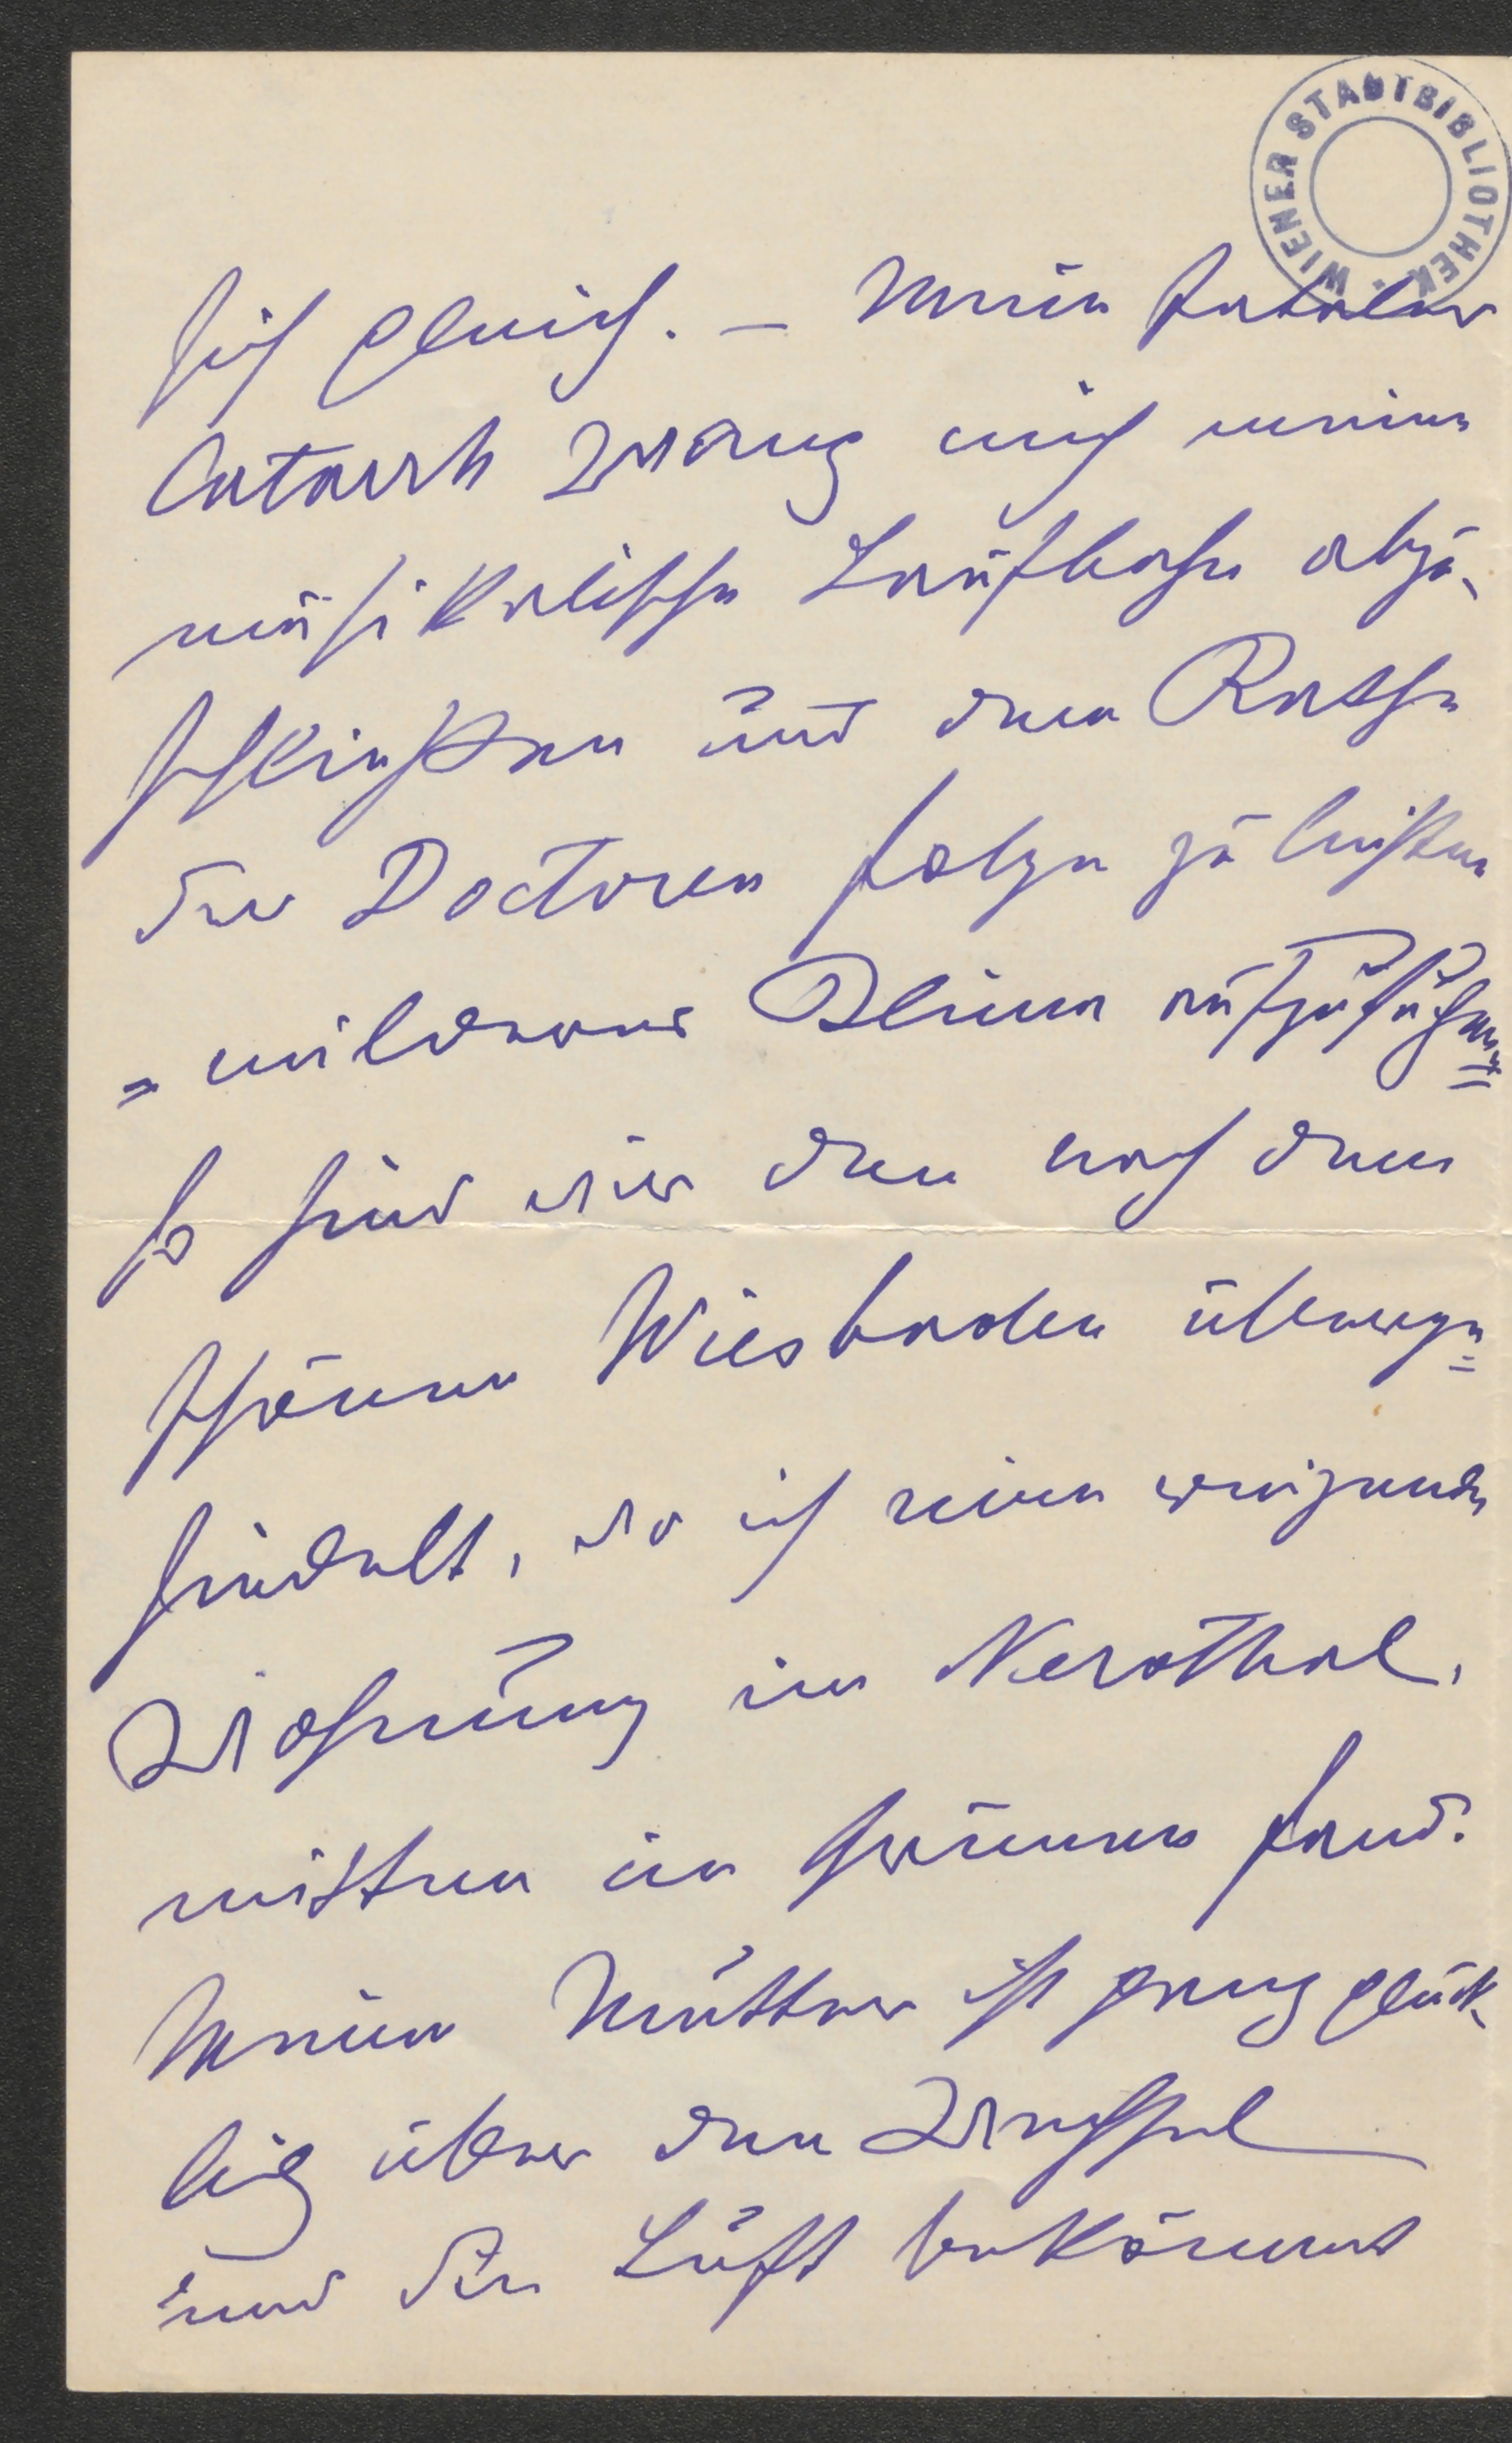 WIENER STADTBIBLIOTHEK.
sich gleich. – Mein fataler
Catarrh zwang mich meine
musikalische Laufbahn abzu-
schließen und dem Rathe
der Doctoren folge zu leisten
"milderes Clima aufzusuchen"
so sind wir den nach dem
schönen Wiesbaden überge=
siedelt, wo ich eine reizende
Wohnung im Nerothal,
mitten im Grünen fand.
Meine Mutter ist ganz glück-
lich über den Wechsel
und die Luft bekömmt